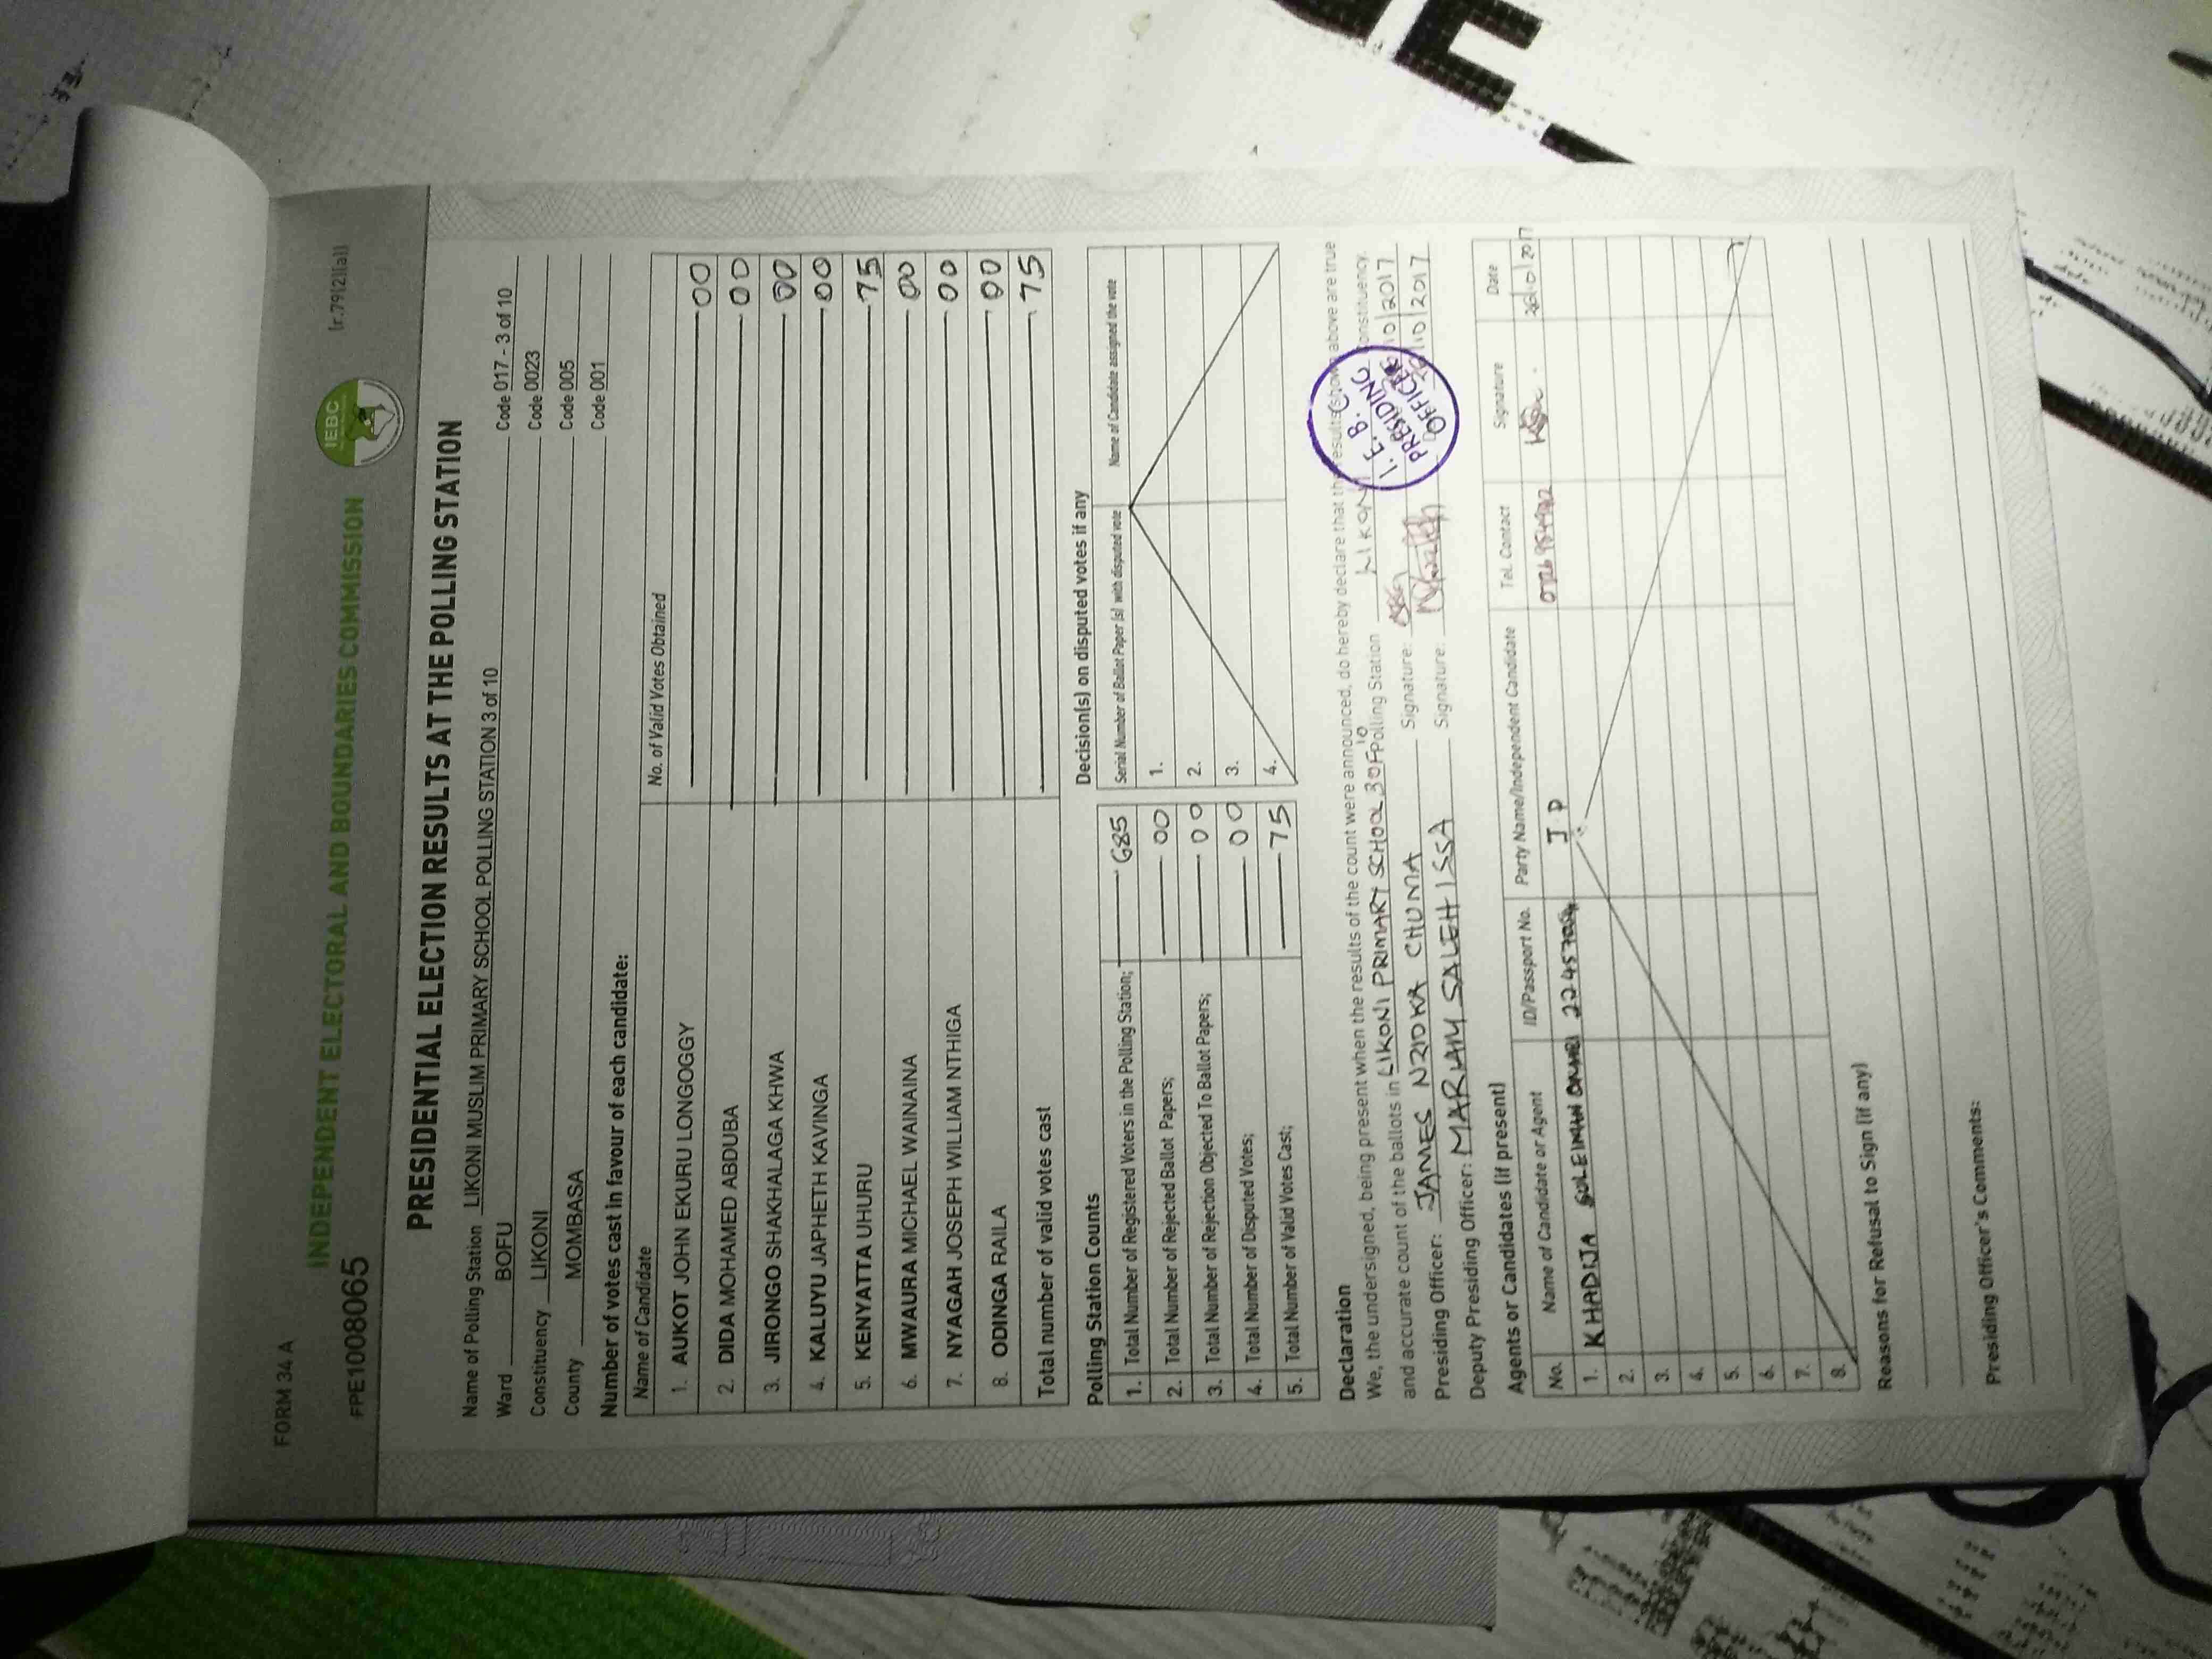 FORM 34 A
(r.79(2)(a))
FPE1008065
INDEPENDENT ELECTORAL AND BOUNDARIES COMMISSION
IEBC
PRESIDENTIAL ELECTION RESULTS AT THE POLLING STATION
Name of Polling Station LIKONI MUSLIM PRIMARY SCHOOL POLLING STATION 3 of 10 Code 017 - 3 of 10
Ward BOFU Code 0023
Constituency LIKONI Code 005
County MOMBASA Code 001
Number of votes cast in favour of each candidate:
Name of Candidate No. of Valid Votes Obtained
1. AUKOT JOHN EKURU LONGOGGY 00
2. DIDA MOHAMED ABDUBA 00
3. JIRONGO SHAKHALAGA KHWA 00
4. KALUYU JAPHETH KAVINGA 00
5. KENYATTA UHURU 75
6. MWAURA MICHAEL WAINAINA 00
7. NYAGAH JOSEPH WILLIAM NTHIGA 00
8. ODINGA RAILA 00
Total number of valid votes cast 75
Polling Station Counts
1. Total Number of Registered Voters in the Polling Station; 685
2. Total Number of Rejected Ballot Papers; 00
3. Total Number of Rejection Objected To Ballot Papers; 00
4. Total Number of Disputed Votes; 00
5. Total Number of Valid Votes Cast; 75
Decision(s) on disputed votes if any
Serial Number of Ballot Paper (s) with disputed vote Name of Candidate assigned the vote
1.
2.
3.
4.
Declaration
We, the undersigned, being present when the results of the count were announced, do hereby declare that the results shown above are true
and accurate count of the ballots in LIKONI PRIMARY SCHOOL 3 OF 10 Polling Station LIKONI Constituency.
Presiding Officer: JAMES NZIOKA CHUMA Signature: /10/2017
Deputy Presiding Officer: MARIAM SALEH ISSA Signature: /10/2017
I.E.B.C
PRESIDING
OFFICER
Agents or Candidates (if present)
No. Name of Candidate or Agent ID/Passport No. Party Name/Independent Candidate Tel. Contact Signature Date
1. KHADIJA J P
2.
3.
4.
5.
6.
7.
8.
Reasons for Refusal to Sign (if any)
Presiding Officer's Comments: